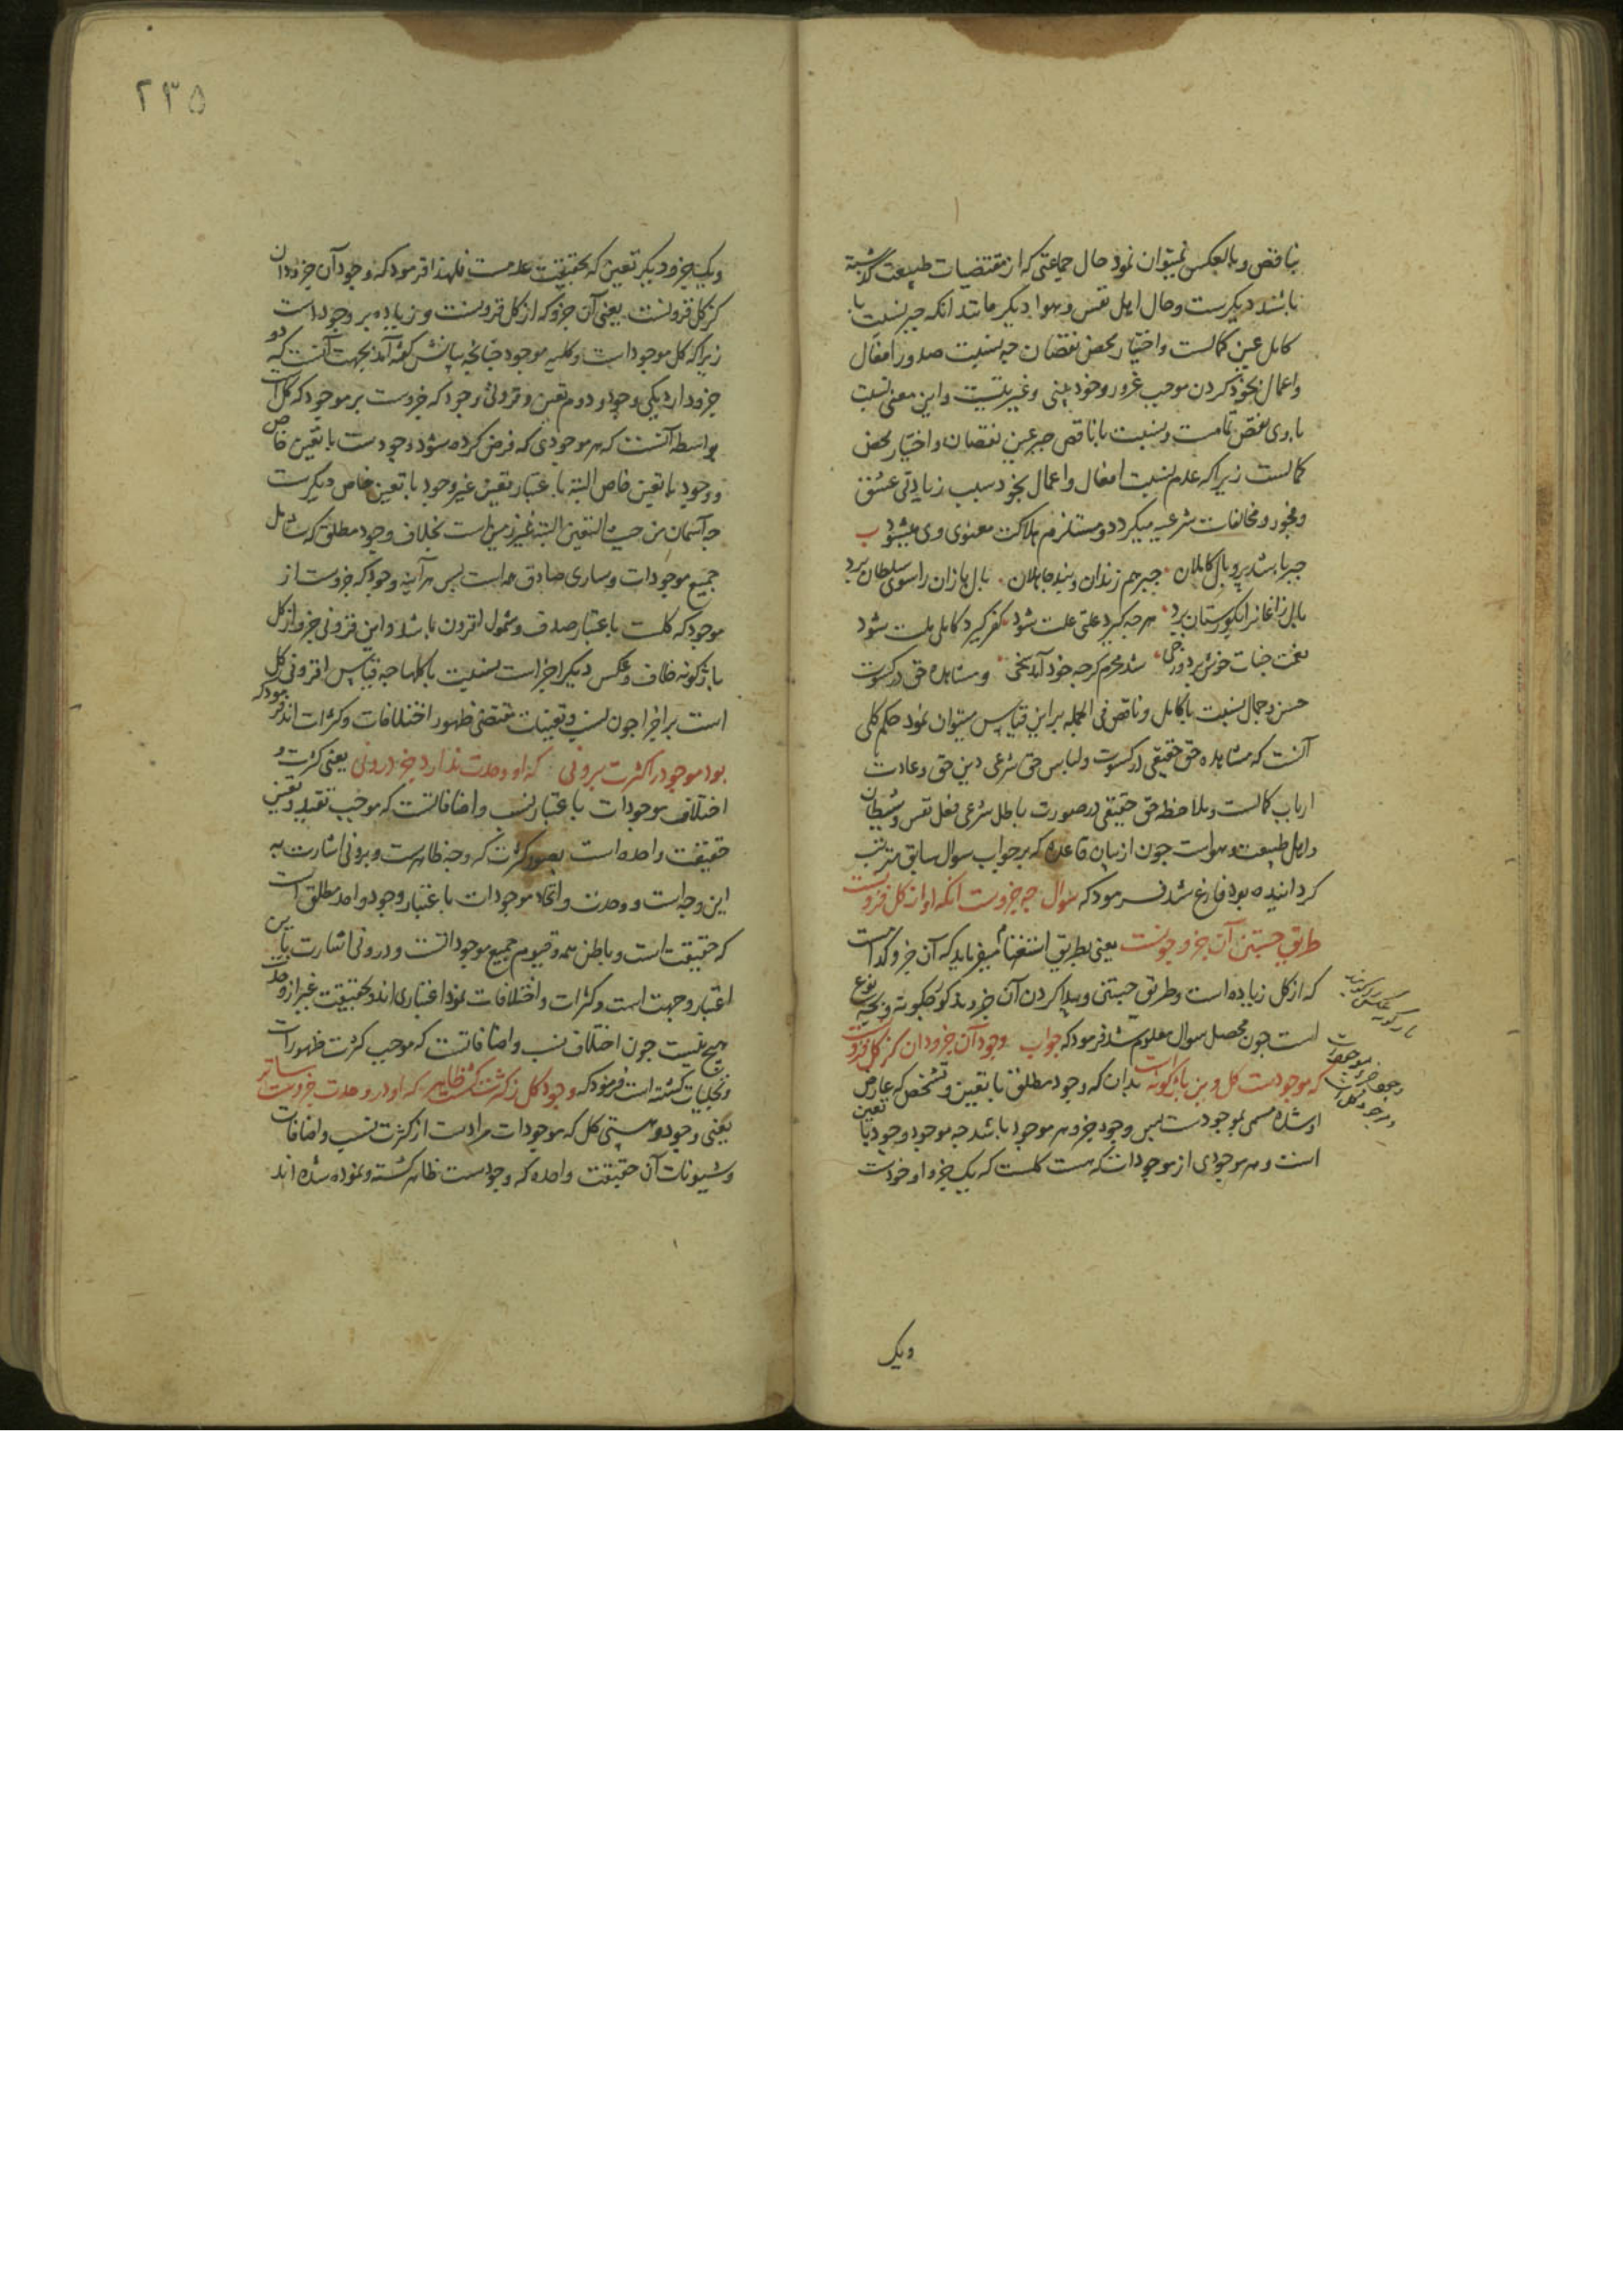 بناقص و بالعکس نمیتوان نمود حال جماعتی که از مقتضیات طبیعت گذشته
باشند دیگرست و حال اهل نفس و هوا دیگر مانند انکه جبر نسبت با
کامل عین کمالست و اختیار محض نقصان چه نسبت صدور افعال
و اعمال بخود کردن موجب غرور و خودبینی و غیریتست و این معنی نسبت
با وی نقص تمامست و نسبت با ناقص جبر عین نقصان و اختیار محض
کمالست زیراکه عدم نسبت افعال و اعمال بخود سبب زیادتی عشق
و فجور و مخالفات شرعیه میگردد و مستلزم هلاکت معنوی وی میشود ب
جبر باشد پر و بال کاملان جبر هم زندان و بند جاهلان بال بازان را سوی سلطان برد
بال زاغانرا بگورستان برد هرچه گیرد علتی علت شود کفر گیرد کاملی ملت شود
نعمت جنات خوش بر دوزخی شد محرم گرچه خود آمد سخی و مشاهده حق در کسوت
حسن و جمال نسبت با کامل و ناقص فی الجمله بر این قیاس میتوان نمود حکم کلی
آنست که مشاهده حق حقیقی در کسوت و لباس حق شرعی دین حق و عادت
ارباب کمالست و ملاحظه حق حقیقی در صورت باطل شرعی فعل نفس و شیطان
و اهل طبیعت و هواست چون از بیان قاعده که بر جواب سوال سابق مترتب
گردانیده بود فارغ شد فرمود که سوال چه جزوست انکه او از کل فزونست
طریق جستن آن جزو چونست یعنی بطریق استفهام میفرماید که آن جزو کدامست
که از کل زیاده است و طریق جستن و پیدا کردن آن جزو مذکور چگونه و بچه نوع
است چون محصل سوال معلوم شد فرمود که جواب وجود آن جزو دان کز کل فزونست
که موجودست کل وین باژگونه است بدان که وجود مطلق با تعین و تشخص که عارض
او شده مسمی بموجودست پس وجود جزو هر موجود باشد چه موجود وجود با تعین
است و هر موجودی از موجودات که هست کلست که یک جزو او خودست
ویک
ویک جزو دیگر تعین که بحقیقت عدمست فلهذا فرمود که وجود آن جزو دان
کز کل فزونست یعنی آن جزو که از کل فزونست و زیاده بر وجود است
زیراکه کل موجود است و کلیه موجود چنانچه بیانش گفته آمد بجهت آنست که دو
جزو دارد یکی وجود و دوم تعین و فزونی وجود که جزوست بر موجود که کل است
بواسطه آنست که هر موجودی که فرض کرده شود وجودست با تعین خاص
و وجود با تعین خاص البته باعتبار تعین غیر وجود با تعین خاص دیگرست
چه آسمان من حیث التعین البته غیر زمین است بخلاف وجود مطلق که شامل
جمیع موجودات و ساری و صادق همه است پس هر آینه وجود که جزوست از
موجود که کلست باعتبار صدق و شمول افزون باشد و این فزونی جزو از کل
باژگونه خلاف و عکس دیگر اجزاست بنسبت با کلها چه قیاس افزونی کل
است بر اجزا چون نسب و تعینات مقتضی ظهور اختلافات و کثرات اند فرمود که
بود موجود را کثرت برونی که او وحدت ندارد جز درونی یعنی کثرت و
اختلاف موجودات باعتبار نسب و اضافاتست که موجب تقید و تعین
حقیقت واحده است بصور کثرت که وجه ظاهرست و برونی اشارت به
این وجه است و وحدت و اتحاد موجودات باعتبار وجود واحد مطلق است
که حقیقت است و باطن همه و قیوم جمیع موجوداتست و درونی اشارت باین
اعتبار و جهت است و کثرات و اختلافات نمود اعتباری اند و بحقیقت غیر از وحدت
هیچ نیست چون اختلاف نسب و اضافاتست که موجب کثرت ظهورات
و تجلیات گشته است فرمود که وجود کل ز کثرت گشت ظاهر که او در وحدت جزوست سائر
یعنی وجود و هستی کل که موجودات مرادست از کثرت نسب و اضافات
و شیونات آن حقیقت واحده که وجودست ظاهر گشته و نموده شده اند
۲۳۵